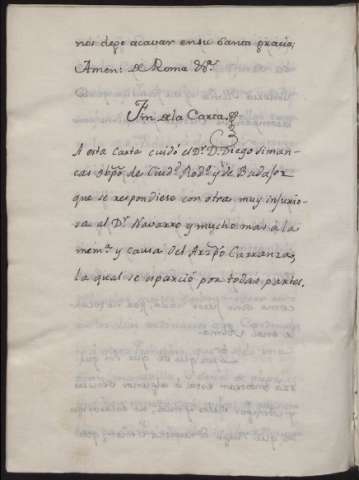 nos deje acavar en su santa gracia;
Amen: de Roma &ª.
Fin de la Carta.
A esta Carta cuidó el Dr. D. Diego Siman-
cas Obpõ de Ciudd. Rodo. y de Badajoz
que se respondiese con otra muy injurio-
sa al Dr. Navarro y mucho mas à la
memª. y causa del Arzpõ Carranza,
la qual se esparció por todas partes.